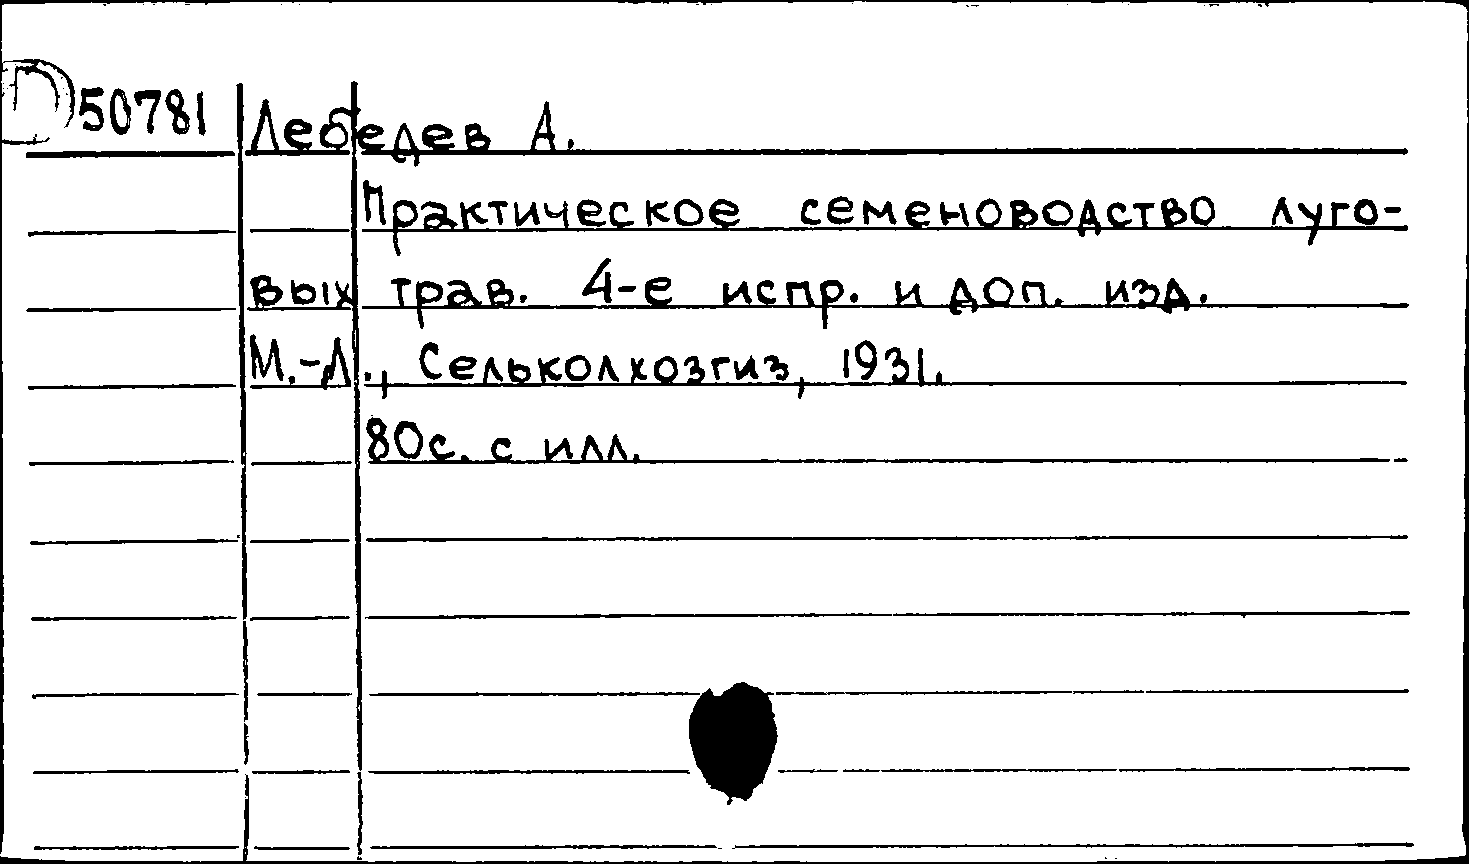 50781 Лебедев А.
Практическое семеноводство луго-
вых трав. 4-е испр. и доп. изд.
М.-Л., Сельколхозгиз, 1931.
80с. с илл.